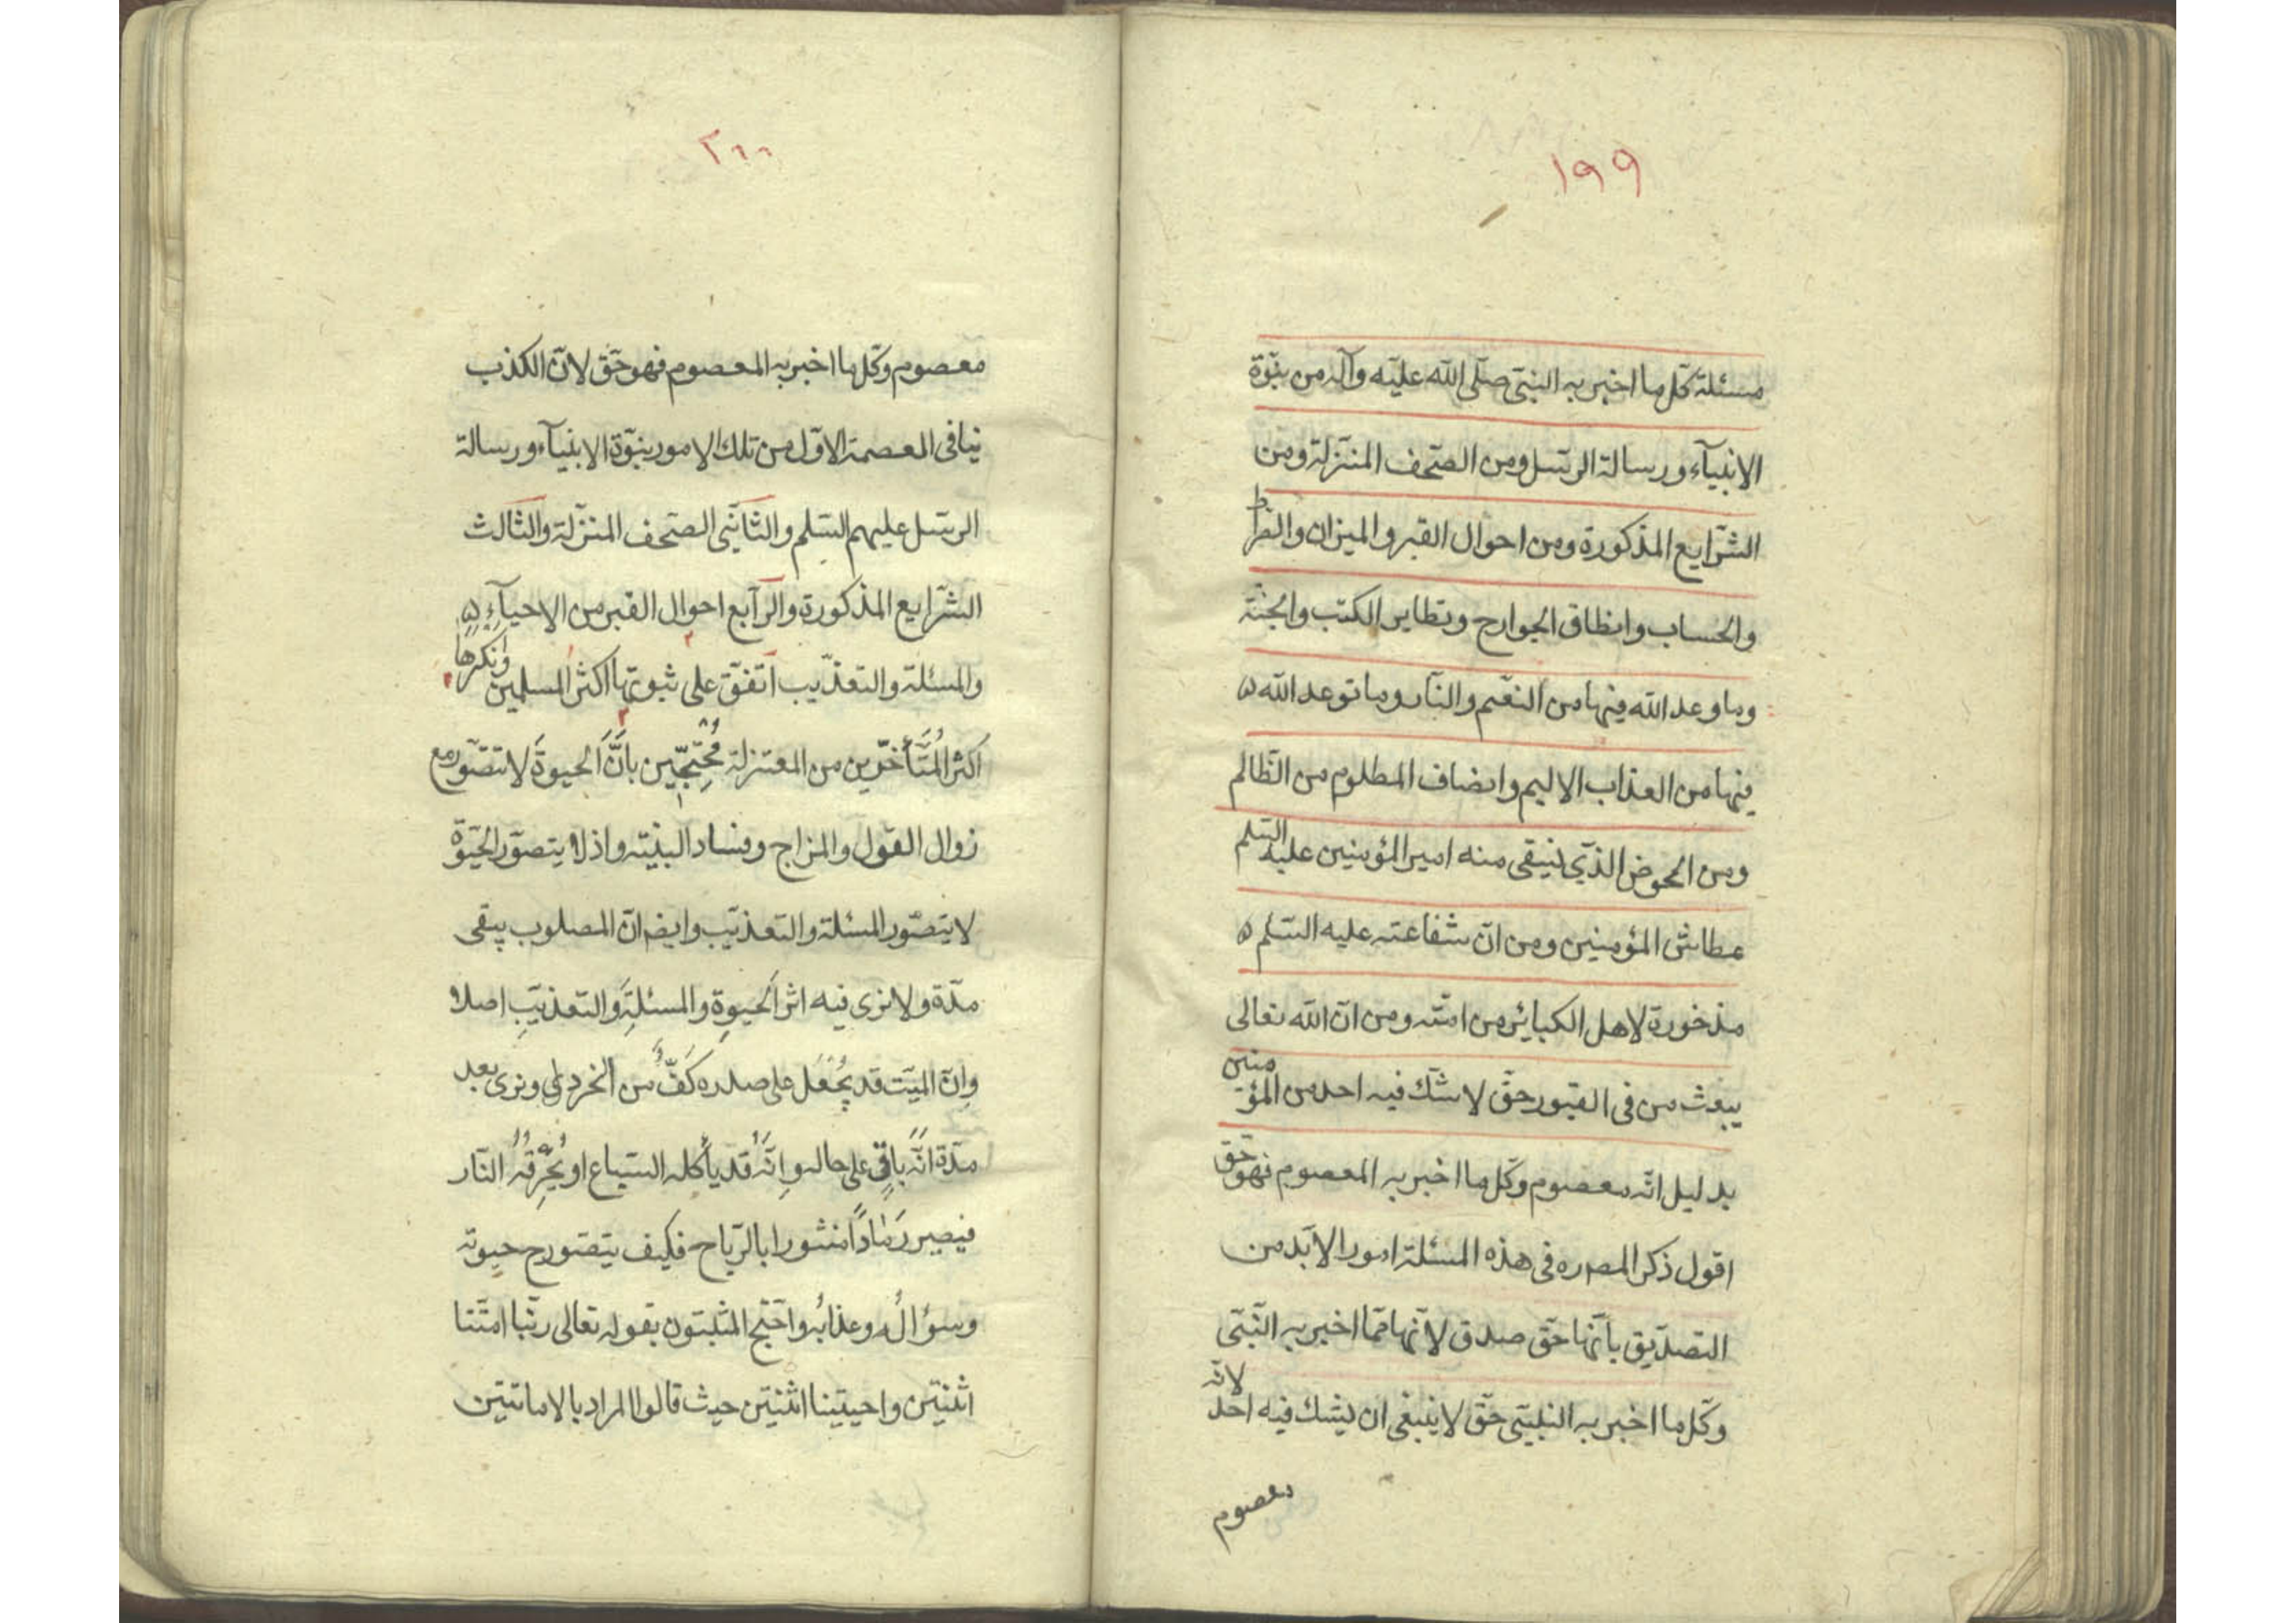 ١٩٩
مسئلة كلّ ما اخبر به النبىّ صلّى الله عليه وآله من نبوّة
الانبيآء ورسالة الرسل ومن الصحف المنزلة ومن
الشرايع المذكورة ومن احوال القبر والميزان والصراط
والحساب وانطاق الجوارح وتطاير الكتب والجنّة
وما وعد الله فيها من النعيم والنار وما توعد الله
فيها من العذاب الاليم وانصاف المظلوم من الظالم
ومن الحوض الذى يسقى منه امير المؤمنين عليه السلم
عطاش المؤمنين ومن انّ شفاعته عليه السلم
مذخورة لاهل الكبائر من امته ومن انّ الله تعالى
يبعث من فى القبور حقّ لا شكّ فيه احد من المؤمنين
بدليل انّه معصوم وكلّ ما اخبر به المعصوم فهو حقّ
اقول ذكر المصره فى هذه المسئلة امورا لابدّ من
التصديق بانّها حقّ صدق لانّها ممّا اخبر به النّبىّ
وكلّ ما اخبر به النبىّ حقّ لا ينبغى ان يشك فيه احد لانّه
معصوم
٢٠٠
معصوم وكلّ ما اخبر به المعصوم فهو حقّ لانّ الكذب
ينافى العصمة الاوّل من تلك الامور نبوّة الانبيآء ورسالة
الرسل عليهم السلم والثانى الصحف المنزلة والثالث
الشرايع المذكورة والرّابع احوال القبر من الاحيآء
والمسئلة والتعذيب اتفق على ثبوتها اكثر المسلمين وانكرها
اكثر المُتَأخّرين من المعتزلة مُحْتجّين بانَّ الحيوةَ لا تتصوّر مع
زوال القول والمزاج وفساد البنيته واذ لا يتصوّر الحيوة
لا يتصوّر المسئلة والتعذيب وايضا انّ المصلوب يبقى
مدّة ولا نرى فيه اثر الحيوةِ والمسئلةِ والتعذيبِ اصلا
وانّ الميّت قد يُجْعَل على صدره كَفٌّ من الخردل ونرى بعد
مدّة انّه باقٍ على حاله وانَّهُ قد يأكله السباع او تُحْرِقُهُ النّار
فيصير رَمَاداً منثورا بالرّياح فكيف يتصوّر ح حيوته
وسؤالُه وعذابُه واحتجّ المثبتون بقوله تعالى ربّنا امتّنا
اثنتين واحييتنا اثنتين حيث قالوا المراد بالاماتتين